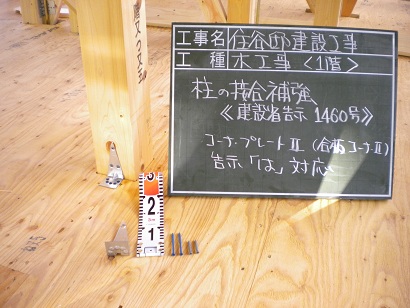 工事名 住谷町建設工事
工種 木工事〈1階〉
柱の接合補強
《建設省告示 1460号》
コーナープレートⅡ (合板コーナーⅡ)
告示「は」対応
2
1